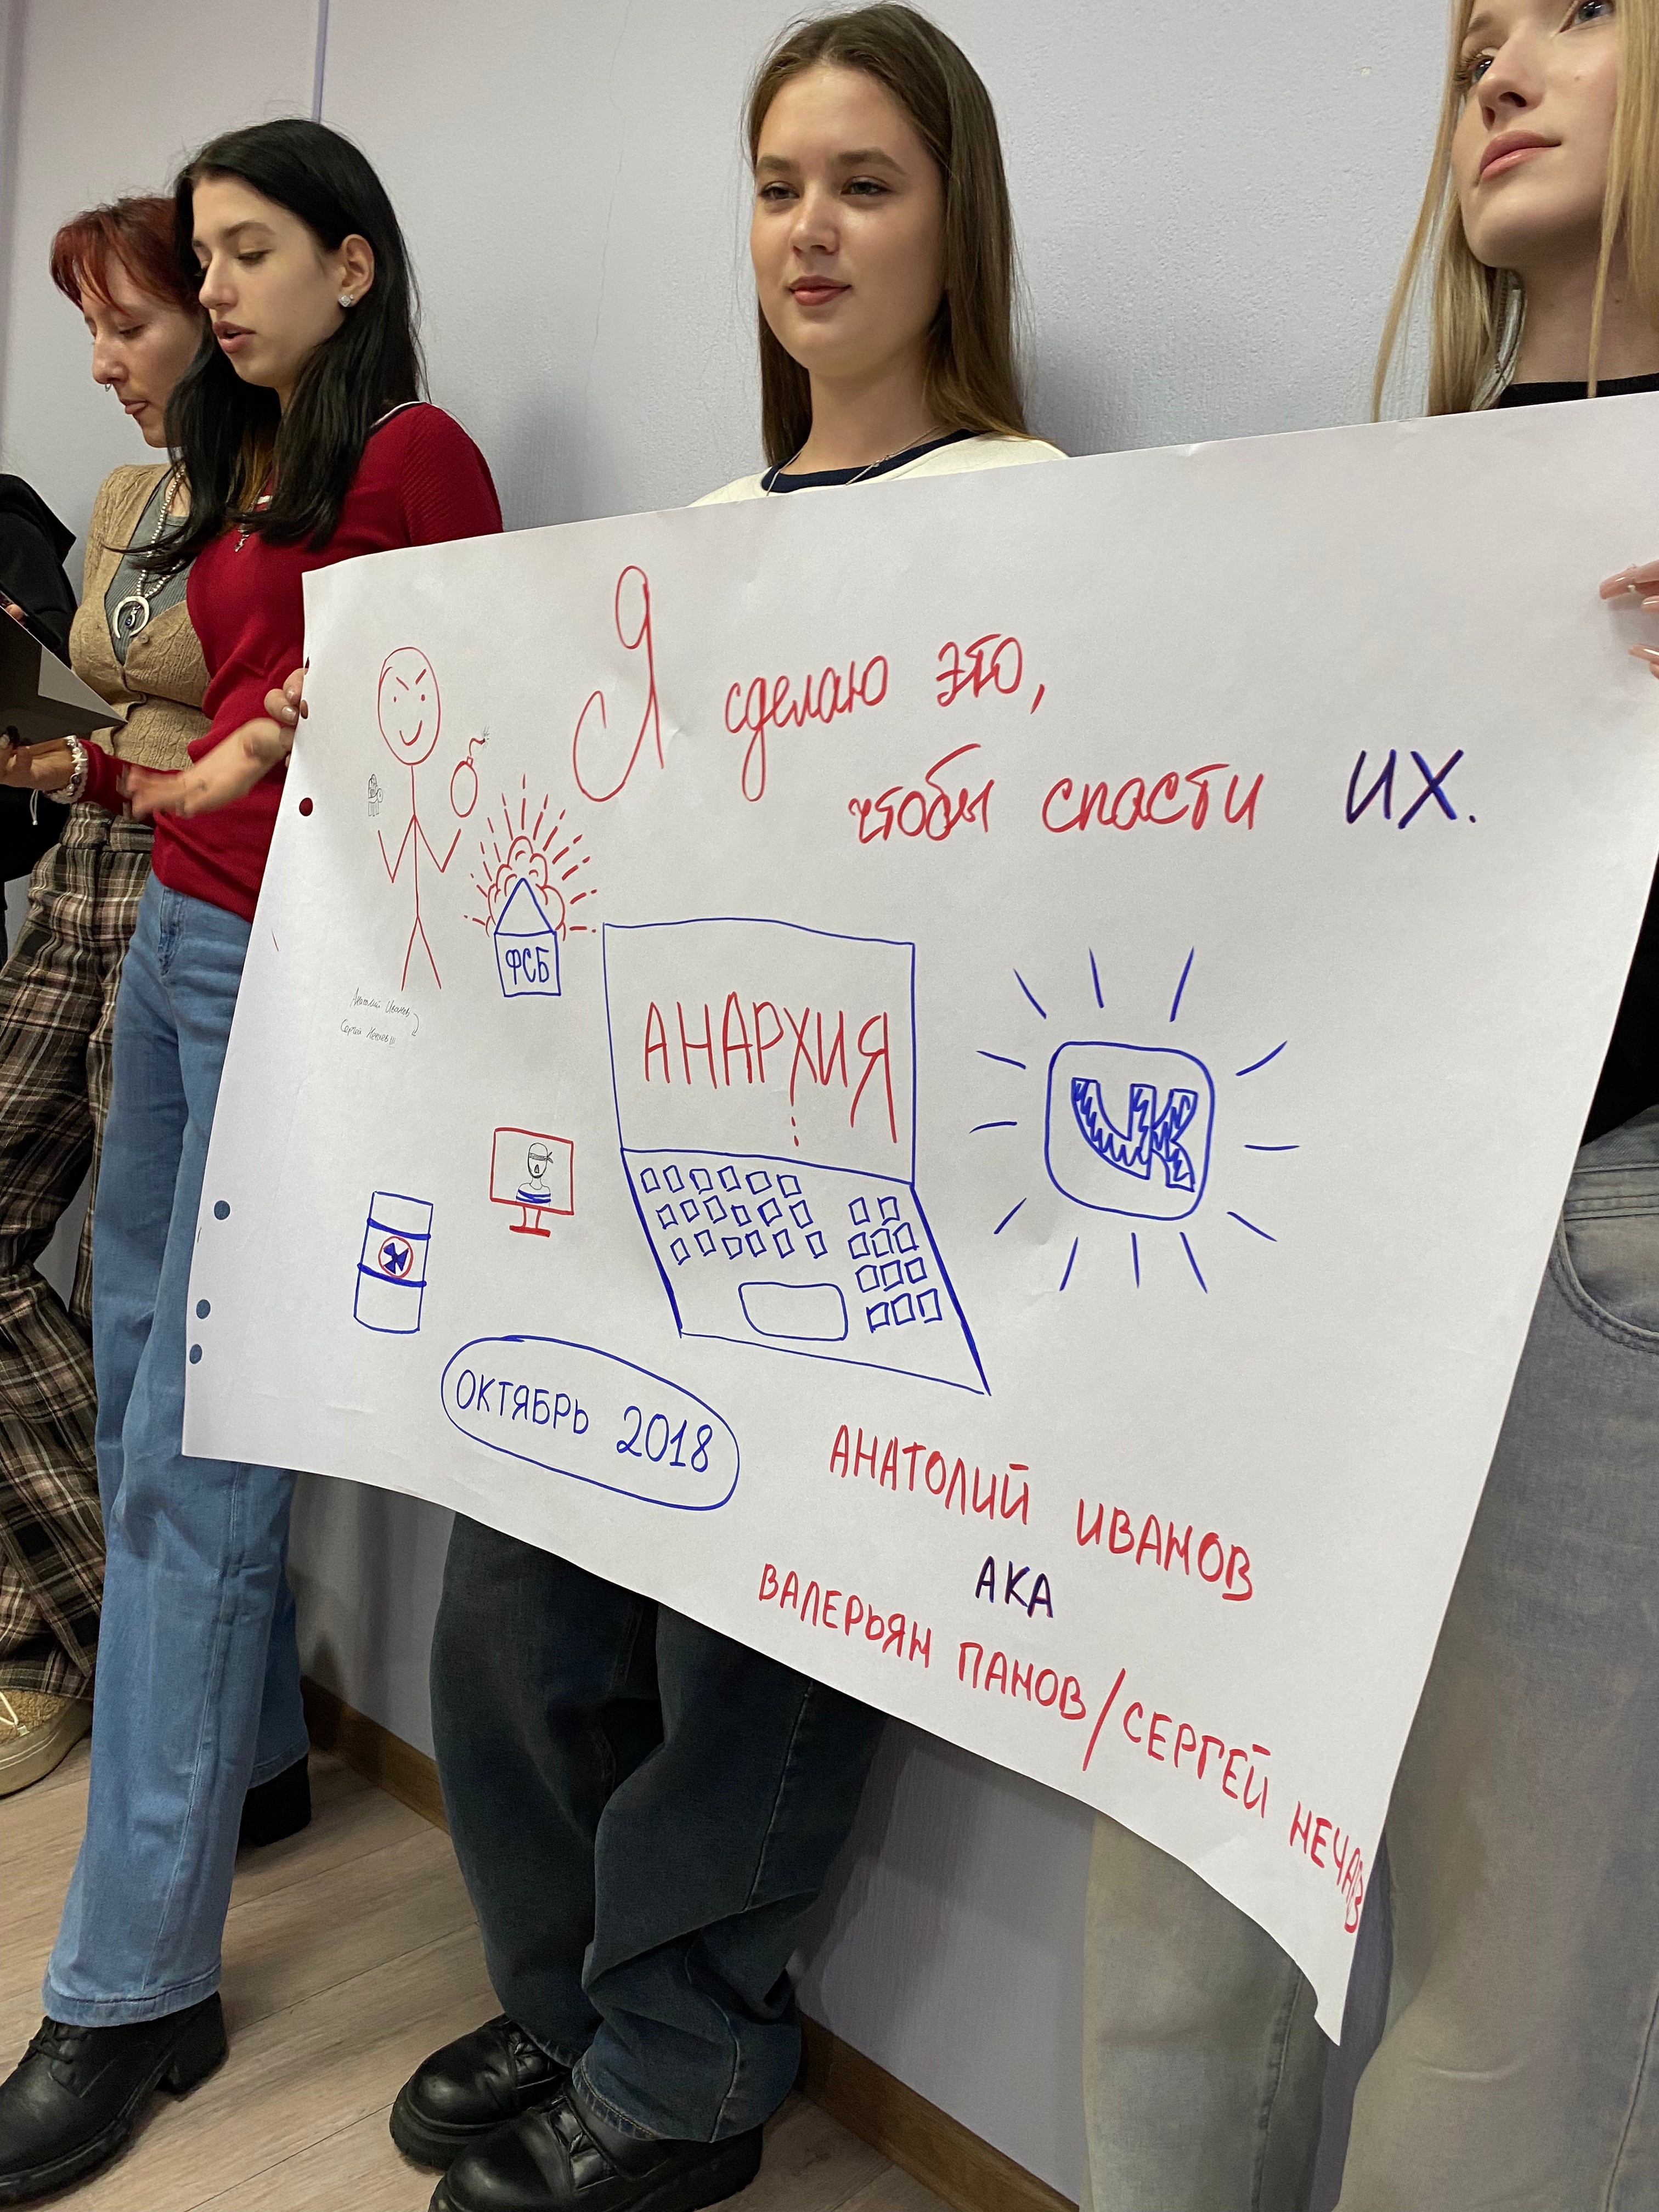 Я сделаю это,
чтобы спасти ИХ.
ФСБ
Анатолий Иванов,
Сергей Нечаев!!!
АНАРХИЯ
VK
ОКТЯБРЬ 2018
АНАТОЛИЙ ИВАНОВ
АКА
ВАЛЕРЬЯН ПАНОВ/СЕРГЕЙ НЕЧАЕВ